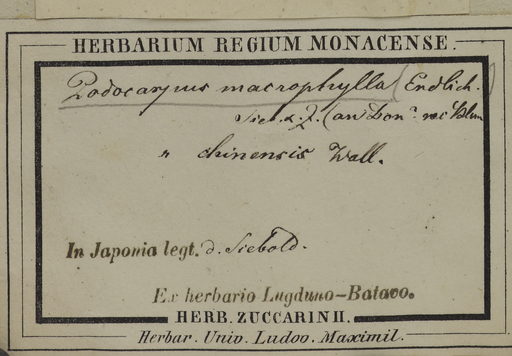 HERBARIUM REGIUM MONACENSE.
Podocarpus macrophylla (Endlich.)
Sieb. & Z. (an Don? nec Blum
" chinensis Wall.
In Japonia legt. d. Siebold.
Ex herbario Lugduno-Batavo.
HERB. ZUCCARINII.
Herbar. Univ. Ludov. Maximil.